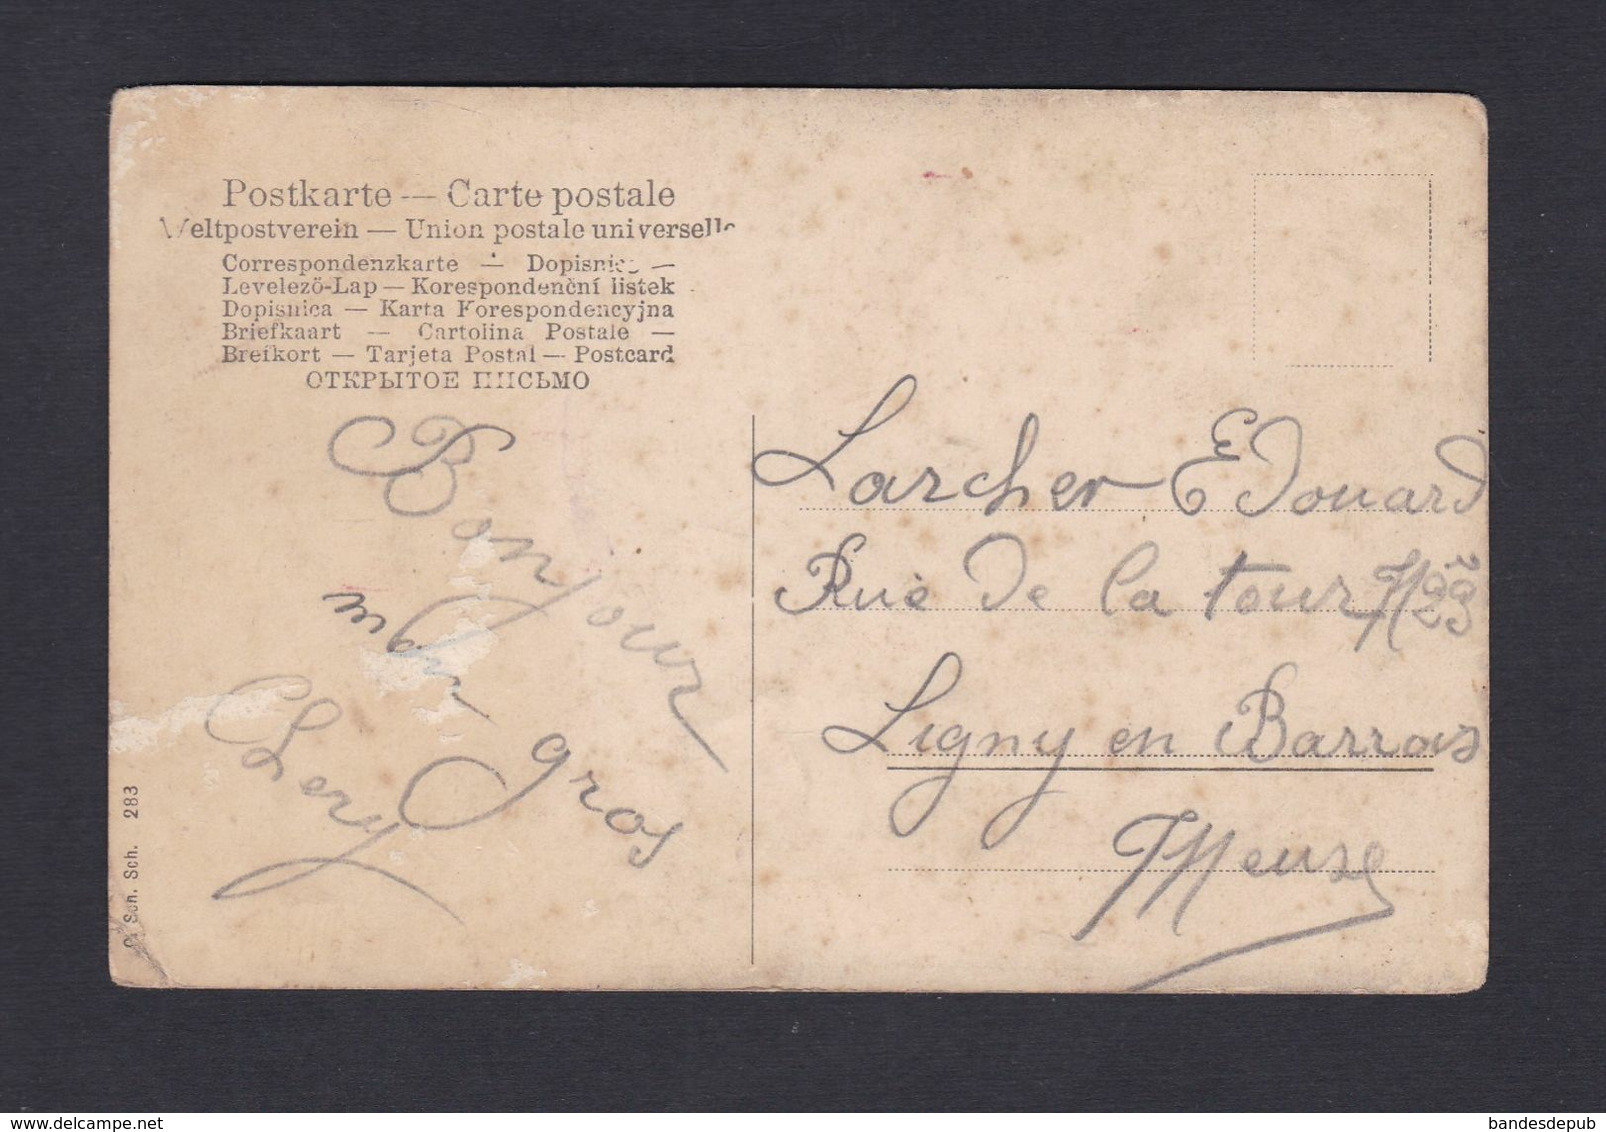 Postkarte — Carte postale
Weltpostverein — Union postale universelle
Correspondenzkarte — Dopisnica —
Levelező-Lap — Korespondenční listek
Dopisnica — Karta Korespondencyjna
Briefkaart — Cartolina Postale —
Brefkort — Tarjeta Postal — Postcard
ОТКРЫТОЕ ПИСЬМО
Bonjour
mon gros
Lery
Larcher Edouard
Rue de la tour
Ligny en Barrois
Meuse
Sch. 283
bandesdepub
www.delcampe.net